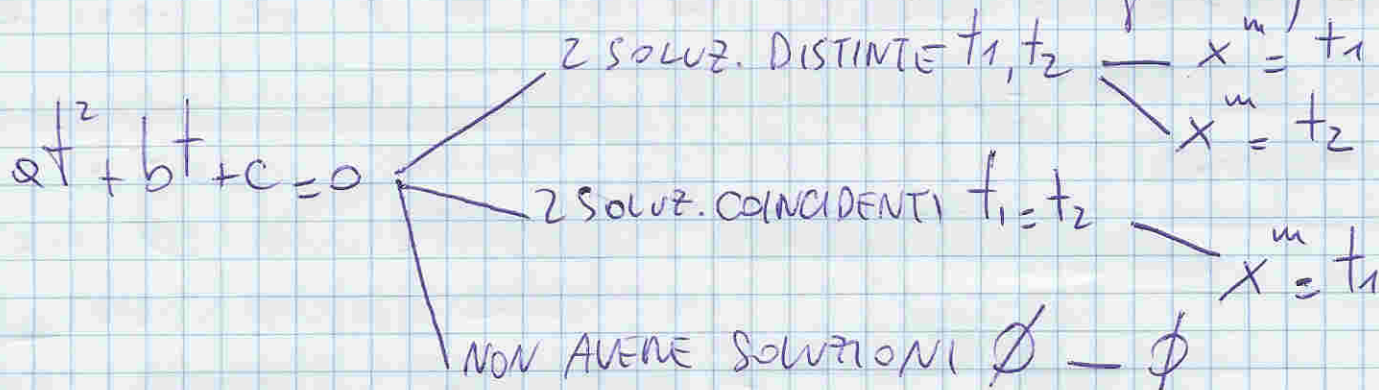 2 SOLUZ. DISTINTE t1, t2 — x^m = t1
x^m = t2
at² + bt + c = 0
2 SOLUZ. COINCIDENTI t1 = t2
x^m = t1
NON AVERE SOLUZIONI ∅ — ∅